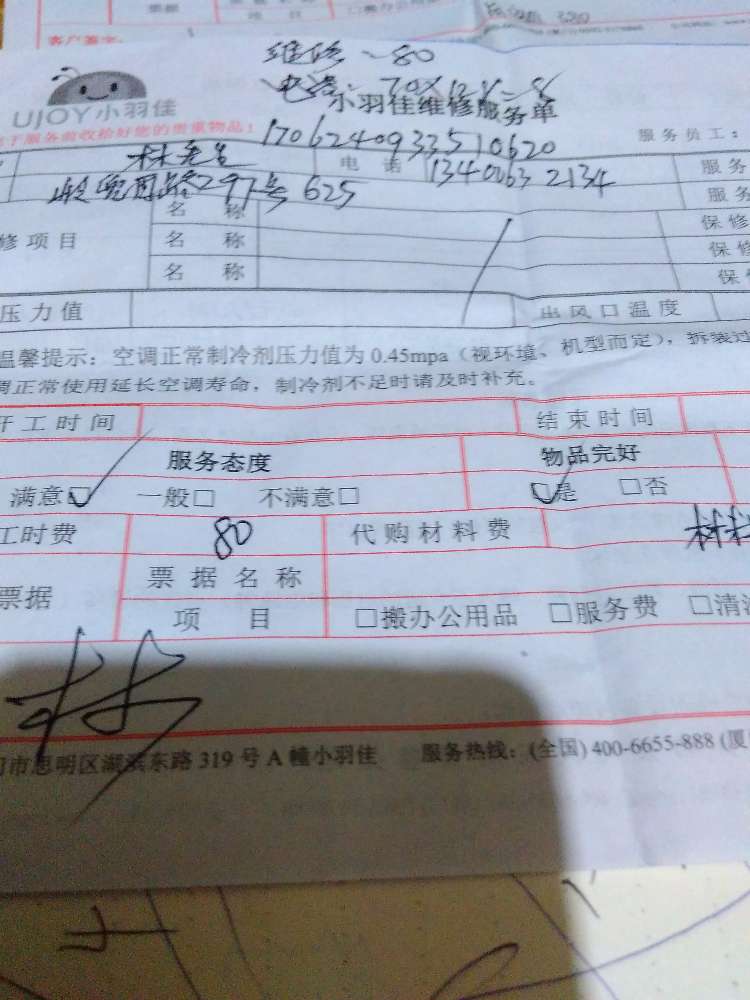 项 目
客户签字:
320
维修 80
UJOY小羽佳
小羽佳维修服务单
服务前收拾好您的贵重物品!
1706240933510620
服务员工:
林先生 电话 13400632134 服务
297号 625 服务
修项目 名 称 保修
名 称 保修
名 称 保
压力值 出风口温度
温馨提示: 空调正常制冷剂压力值为 0.45mpa (视环境、机型而定), 拆装过
调正常使用延长空调寿命, 制冷剂不足时请及时补充。
开工时间 结束时间
服务态度 物品完好
满意☑ 一般□ 不满意□ ☑是 □否
工时费 80 代购材料费 材料
票据 票据名称
项 目 □搬办公用品 □服务费 □清
林
门市思明区湖滨东路 319 号 A 幢小羽佳 服务热线: (全国) 400-6655-888 (厦